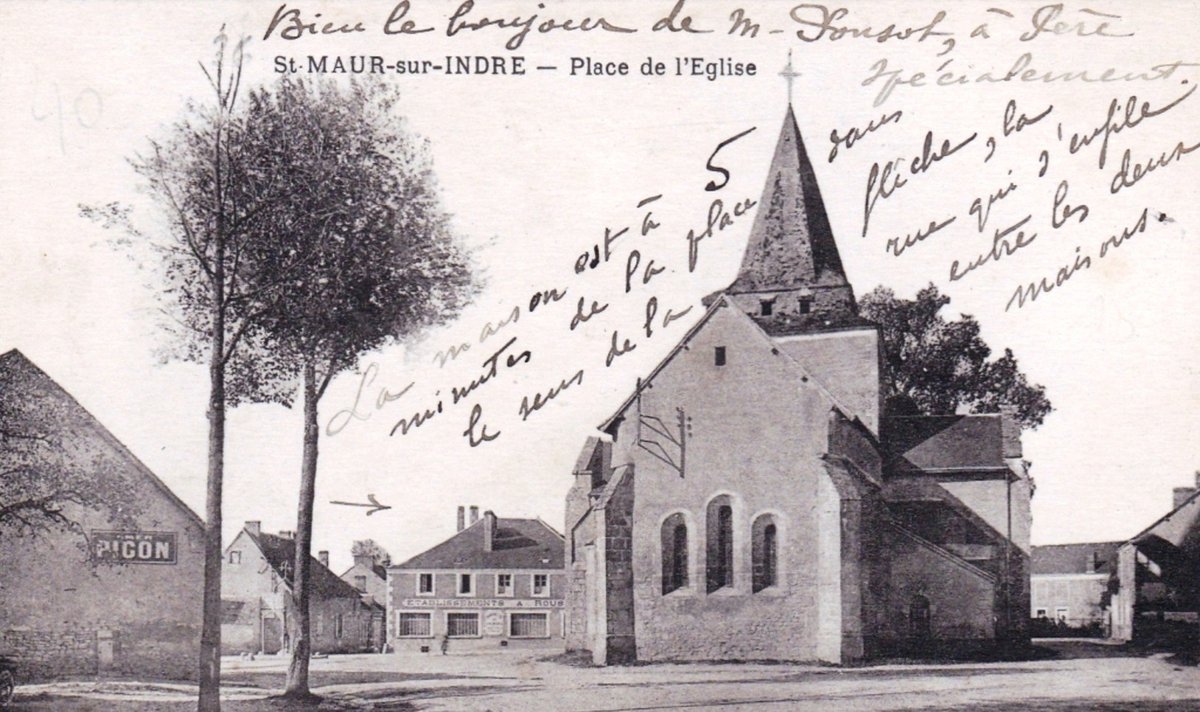 Bien le bonjour de M- Ponsot, à Père
spécialement.
St-MAUR-sur-INDRE — Place de l'Eglise
La maison est à 5
minutes de la place dans
le sens de la flèche, la
rue qui s'enfile
entre les deux
maisons.
40
PICON
ETABLISSEMENTS A ROUS